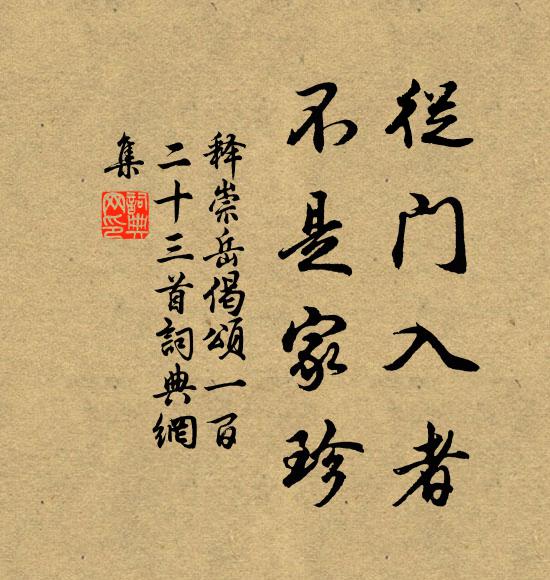 從門入者
不是家珍
释崇岳偈頌一百
二十三首詞典網
集
詞典网印